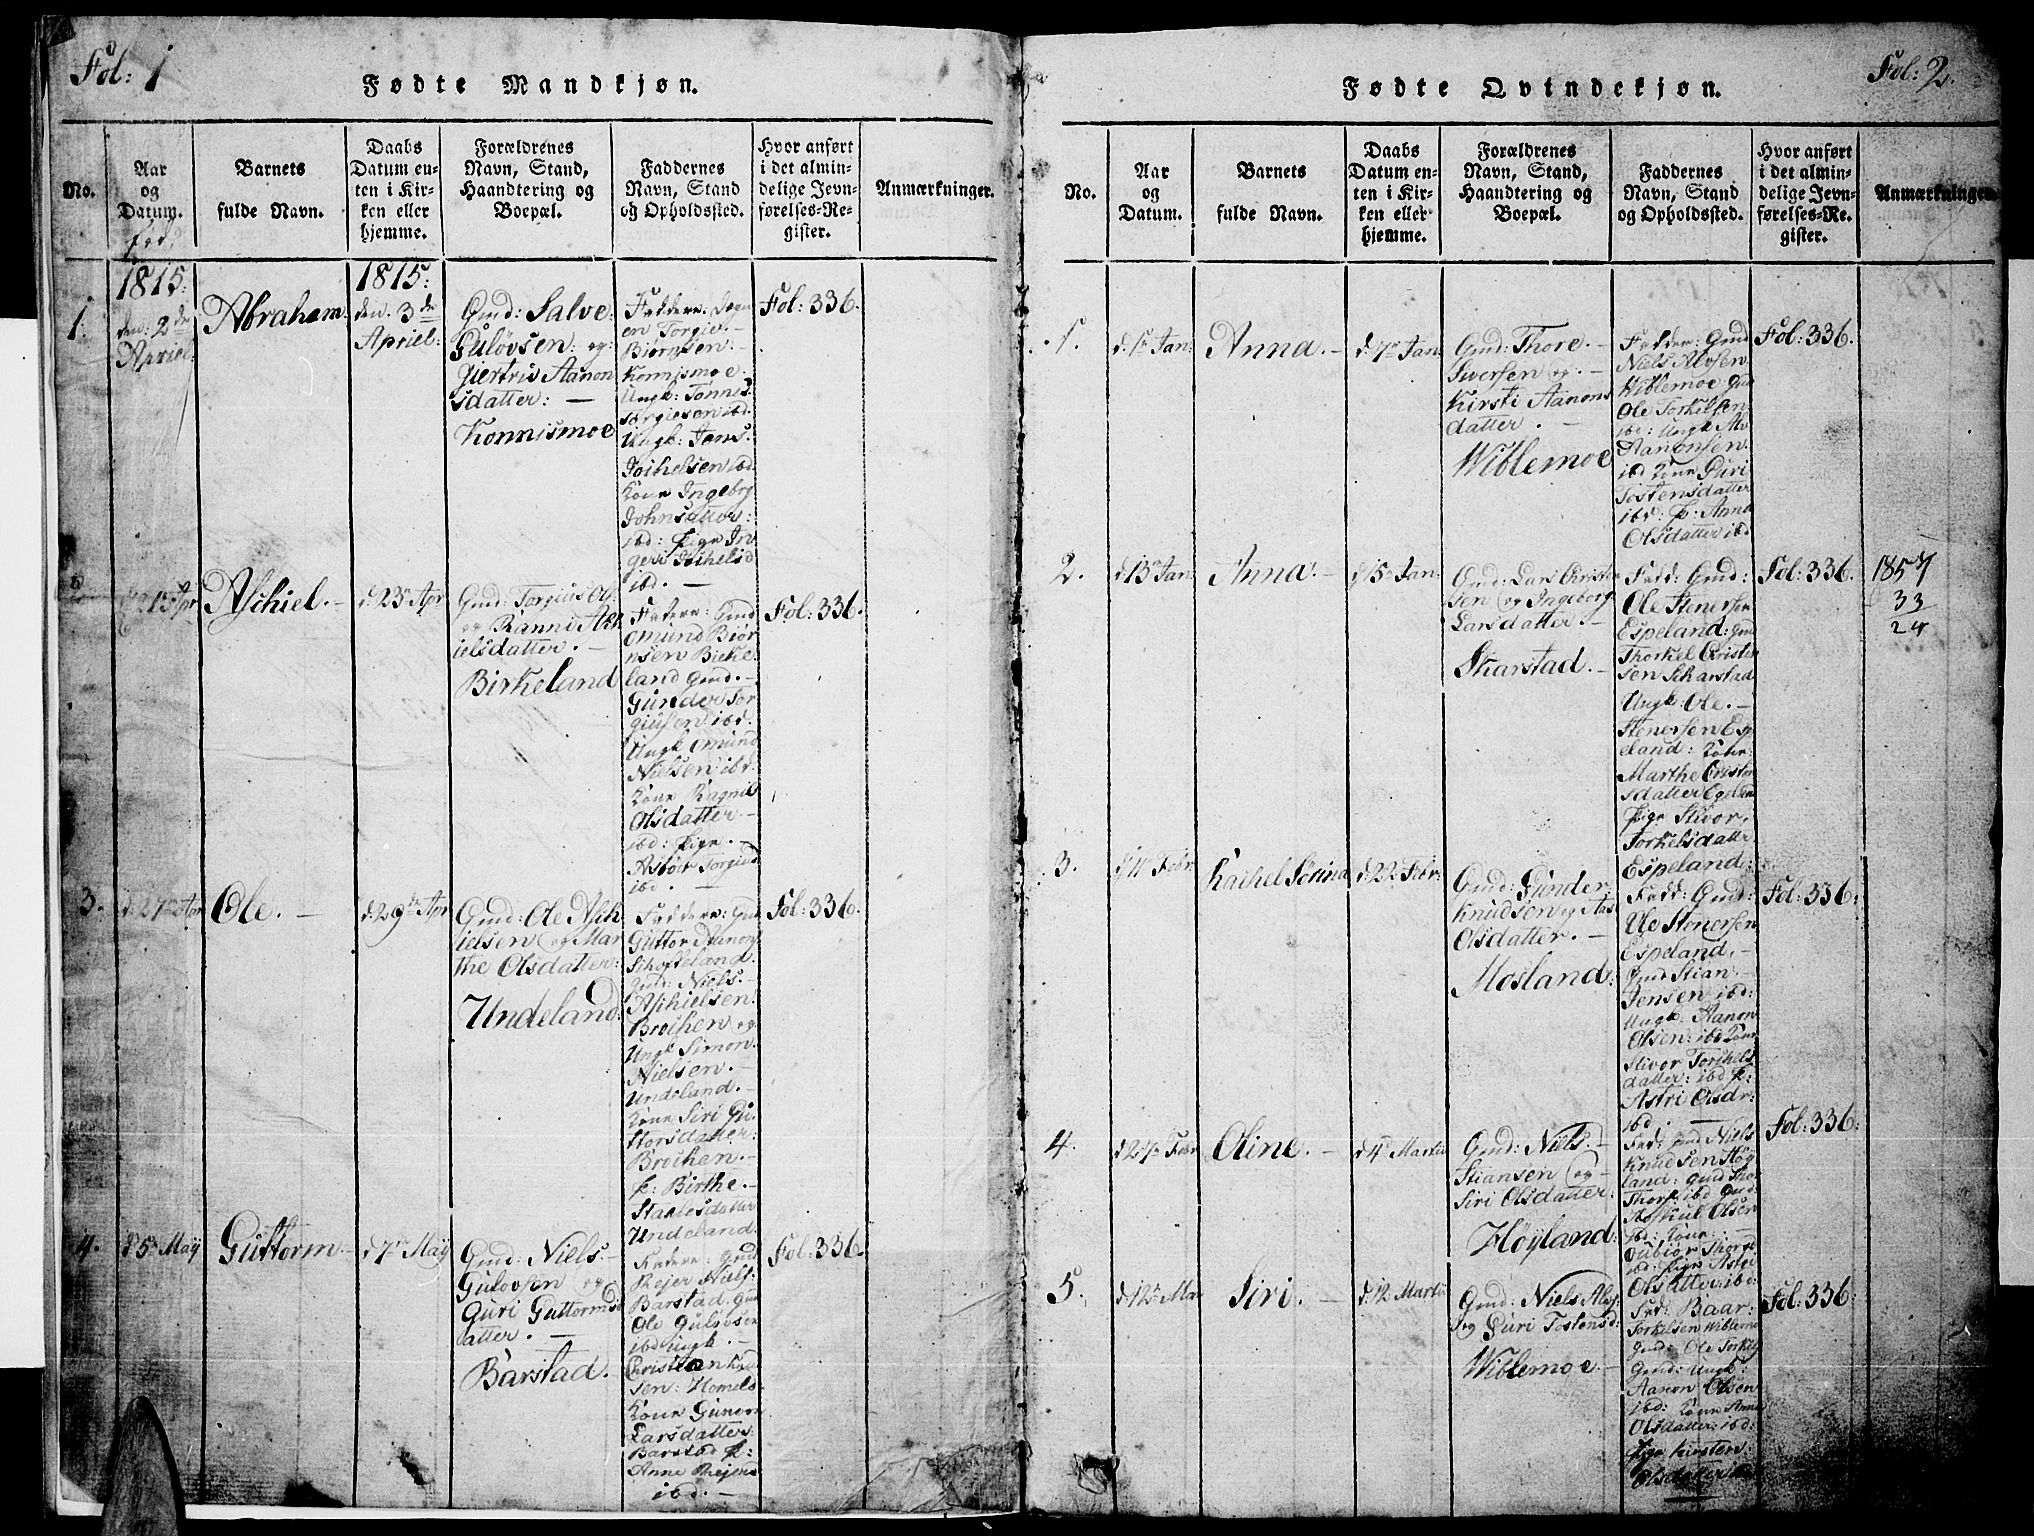 Fol: 1
Fødte Mandkjøn.
No.
Aar
og
Datum.
Barnets
fulde Navn.
Daabs
Datum en-
ten i Kir-
ken eller
hjemme.
Forældrenes
Navn, Stand,
Haandtering og
Boepæl.
Faddernes
Navn, Stand
og Opholdssted.
Hvor anført
i det almin-
delige Jevn-
førelses-Re-
gister.
Anmærkninger.
1.
1815:
den: 2de
Apriel:
Abraham
1815:
den. 3de
Apriel:
Gmd: Salve
Guløvsen: og
Giertrud Aanon
sdatter: —
Konnismoe
Faddere:
en Torgie
Biørnsen: —
Konnismoe.
Ungk: Tønnis
Torgiesen ibd.
Ungk: Jans
Kone Ingeborg
Johnsdatter:
ibd: Pige In
ibd. —
Fol: 336.
13 Apr
Aschiel. —
d. 23 Apr
Gmd: Torgius Ols
og Ranni Asch
ielsdatter. —
Birkeland
Faddere: Gmd
Omund Biør
nsen Birke
land Gmd. —
Gunder Tor
giusen ibd.
Ungk Omund
Nielsen ibd.
Kone Ragnil
Olsdatter —
ibd: Pige. —
Asbiør Torgiusd
ibd. —
Fol: 336.
3.
d. 27 Apr
Ole. —
d. 29de Apr
Gmd: Ole Asch
ielsen og Mar
the Olsdatter:
Undeland
Faddere: Gmd
Guttor Aanons
Schofteland.
Gmd: Niels. —
Aschielsen:
Broihen og
Ungk Simon
Nielsen. —
Undeland. —
Kone Siri Gu
ttorsdatter:
Broihen. —
P: Birthe. —
Staalesdatter
Undeland.
Fol: 336.
4.
d. 5 May
Guttorm —
d. 7 May
Gmd: Niels —
Guløvsen og
Guri Guttormsd
atter. —
Barstad.
Faddere: Gmd
Rejer Niels:
Barstad. Gmd
Ole Guløvsen
ibd Ungk. —
Christian Knu
sen: Homels
Kone Gunvor
Larsdatter:
Barstad P:
Anne Rejers
ibd. —
Fol: 336.
Fol: 2.
Fødte Qvindekjøn.
No.
Aar
og
Datum.
Barnets
fulde Navn.
Daabs
Datum en-
ten i Kir-
ken eller
hjemme.
Forældrenes
Navn, Stand,
Haandtering og
Boepæl.
Faddernes
Navn, Stand
og Opholdssted.
Hvor anført
i det almin-
delige Jevn-
førelses-Re-
gister.
Anmærkninger.
1.
d. 1 Jan:
Anna. —
d. 7 Jan
Gmd: Thore. —
Siversen og. —
Kirsti Aanons
datter. —
Wiblemoe
Faddere: Gmd
Niels Alvsen
Wiblemoe Gmd
Ole Torkelsen
ibd: Ungk Alv
Aanonsen.
ibd Kone Guri
Tostensdatter
ibd: P: Anna
Olsdatter ibd
Fol: 336.
2.
d. 13 Jan:
Anna. —
d. 15 Jan:
Gmd: Lars Christen
sen og Ingeborg
Larsdatter. —
Skarstad. —
Fadd: Gmd:
Ole Stenersen
Espeland: Gmd
Thorkel Christen
sen Scharstad
Ungk Ole. —
Stenersen Esp
eland: Kone
Marthe Christen
sdatter
Pige Stivor.
Torkelsdatter
Espeland:
Fol: 336.
1857
33
24
3.
d. 11 Febr
Rachel Serina
d. 22 Febr:
Gmd: Gunder
Knudsen og Aas
Olsdatter. —
Mosland:
Fadd: Gmd:
Ole Stenersen
Espeland. —
Gmd Stian. —
Jensen ibd:
Ungk: Aanon
Olsen: ibd Kone
Stivor Torikels
datter: ibd P:
Astri Olsdr:
ibd. —
Fol: 336.
4.
d. 27 Febr
Oline. —
d. 4 Martii
Gmd: Niels. —
Stiansen og —
Siri Olsdatter:
Høyland:
Fad: Gmd Niels
Knudsen Høy
land: Gmd Tho
Thors: ibd Gmd:
Aaskiul Olsen
ibd: Kone: —
Gubiør Thorsd
ibd: Pige Aste
Olsdatter: ibd:
Fol: 336:
5.
d. 12 Mar
Siri. —
d. 12 Martii
Gmd: Niels Als:
og Guri Tostensd:
Wiblemoe —
Fad: Baar:
Torkelsen Wiblemo
Gmd: Ole Torkel
Gmd: Ungk:
Aanon Olsen
ibd: Kone Anna
Olsdatter: ibd:
Pige Kirsten:
Olsdatter
Fol: 336: